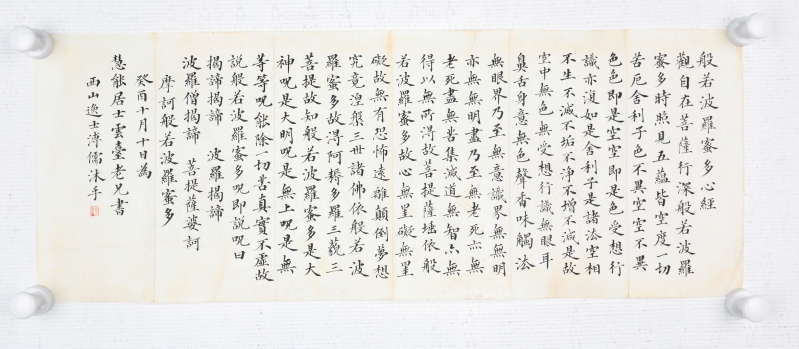 般若波羅蜜多心經
觀自在菩薩行深般若波羅
蜜多時照見五蘊皆空度一切
苦厄舍利子色不異空空不異
色色即是空空即是色受想行
識亦復如是舍利子是諸法空相
不生不滅不垢不淨不增不減是故
空中無色無受想行識無眼耳
鼻舌身意無色聲香味觸法
無眼界乃至無意識界無無明
亦無無明盡乃至無老死亦無
老死盡無苦集滅道無智亦無
得以無所得故菩提薩埵依般
若波羅蜜多故心無罣礙無罣
礙故無有恐怖遠離顛倒夢想
究竟涅槃三世諸佛依般若波
羅蜜多故得阿耨多羅三藐三
菩提故知般若波羅蜜多是大
神呪是大明呪是無上呪是無
等等呪能除一切苦真實不虛故
說般若波羅蜜多呪即說呪曰
揭諦揭諦 波羅揭諦
波羅僧揭諦 菩提薩婆訶
摩訶般若波羅蜜多
癸酉十月十日為
慧能居士雲臺老兄書
西山逸士溥儒沐手